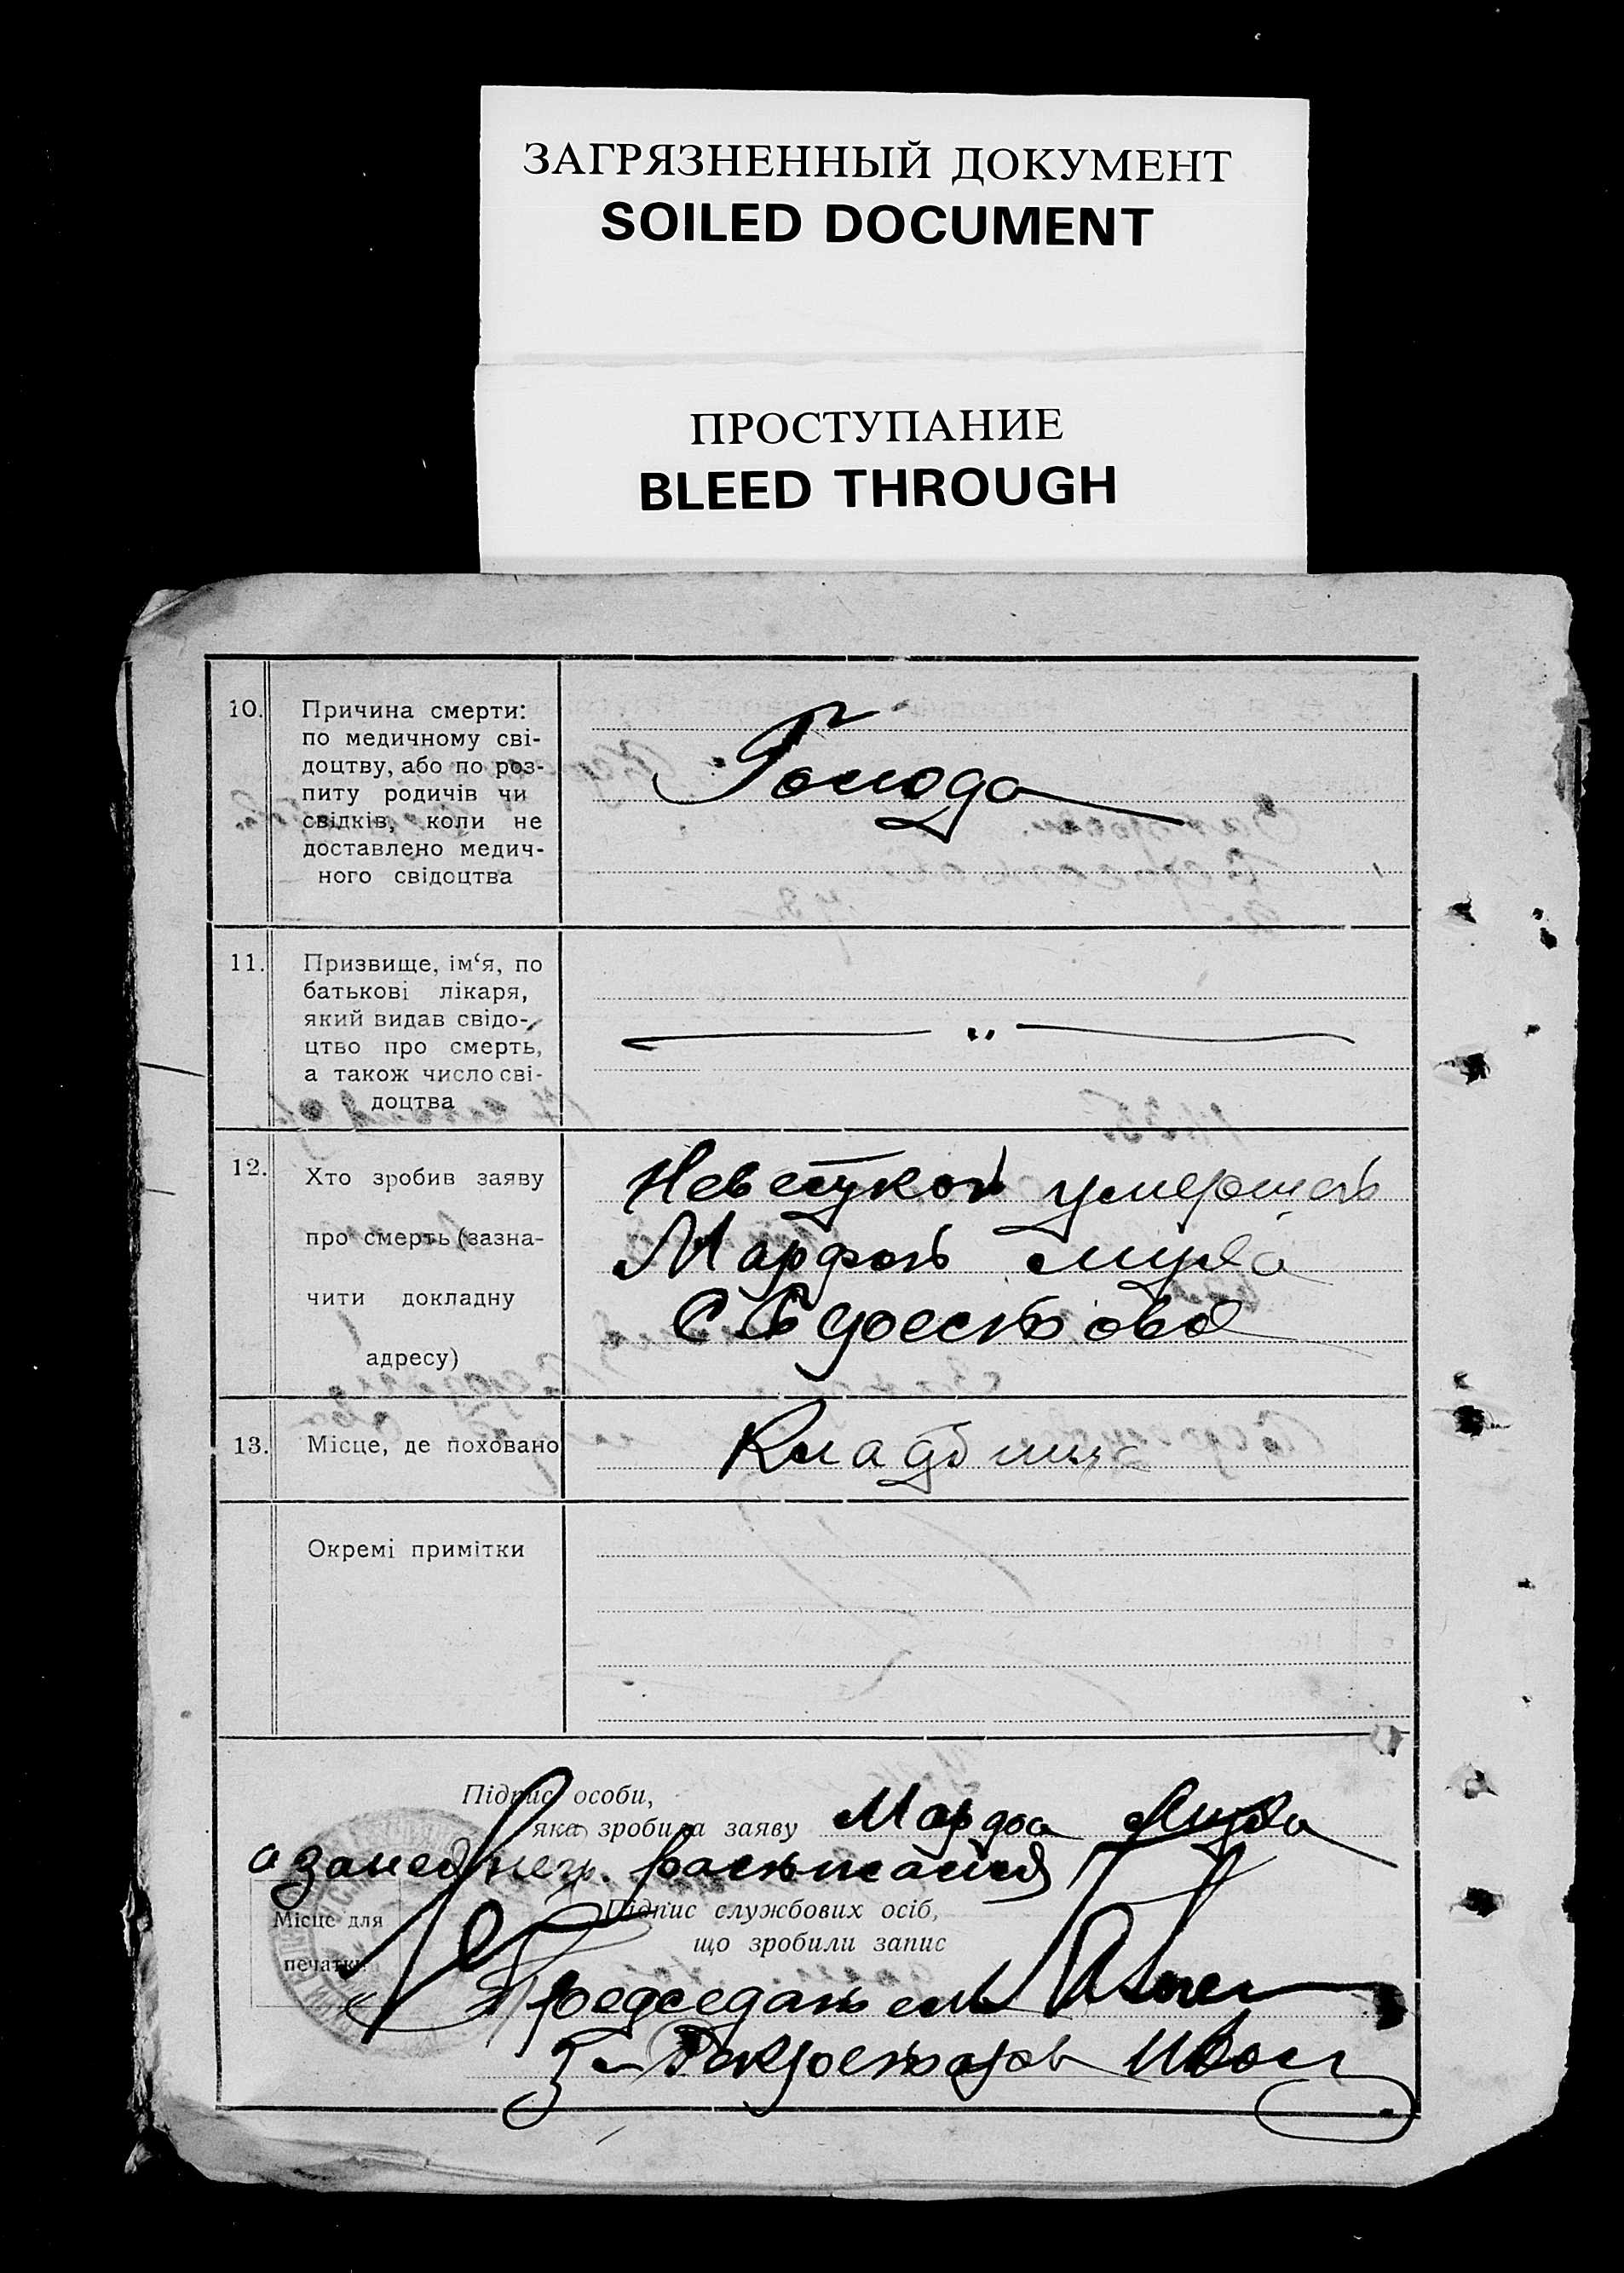 ЗАГРЯЗНЕННЫЙ ДОКУМЕНТ
SOILED DOCUMENT
ПРОСТУПАНИЕ
BLEED THROUGH
10. Причина смерти:
по медичному сві-
доцтву, або по роз-
питу родичів чи
свідків, коли не
доставлено медич-
ного свідоцтва
Голода
11. Призвище, ім‘я, по
батькові лікаря,
який видав свідо-
цтво про смерть,
а також число сві-
доцтва
12. Хто зробив заяву
про смерть (зазна-
чити докладну
адресу)
Невесткой умершей
Марфой
13. Місце, де поховано
Кладбище
Окремі примітки
Підпис особи,
яка зробила заяву Марфа
Підпис службових осіб,
що зробили запис
Місце для
печатки
Председатель
Секретарь